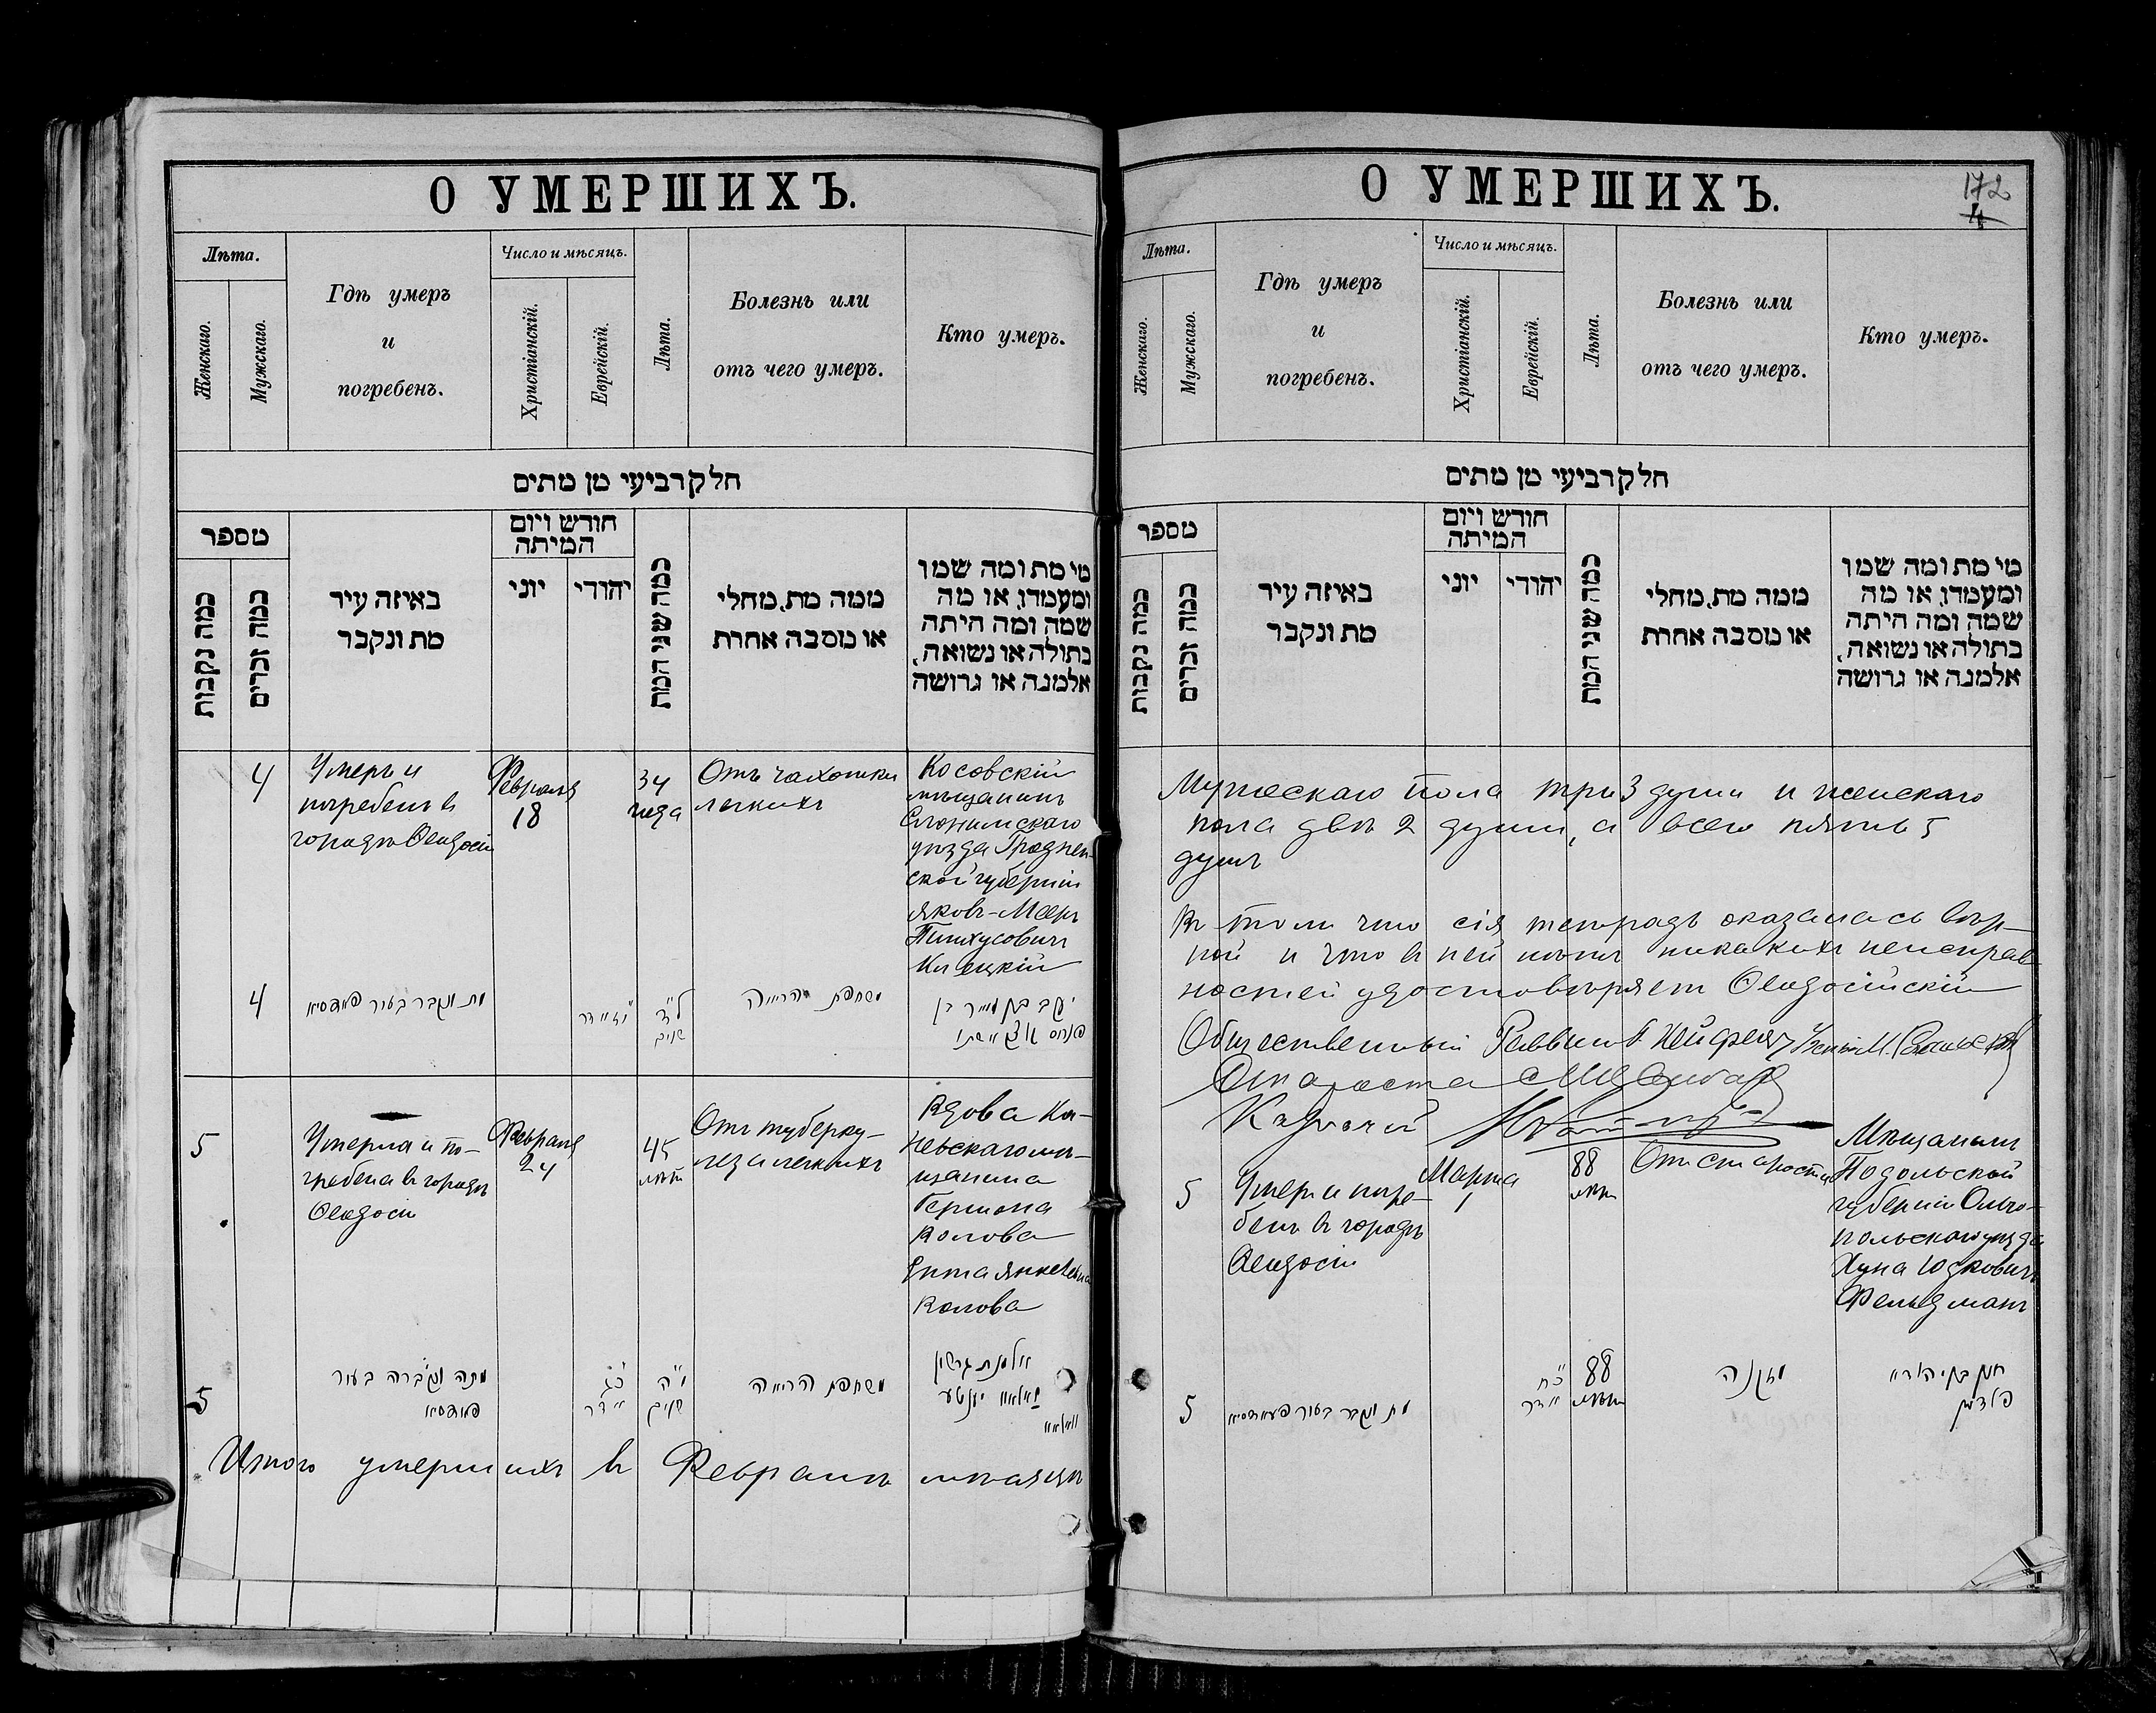 О УМЕРШИХЪ.
Лѣта.
Женскаго.
Мужскаго.
Гдѣ умеръ
и
погребенъ.
Число и мѣсяцъ.
Христіанскій.
Еврейскій.
Лѣта.
Болезнь или
отъ чего умеръ.
Кто умеръ.
חלק רביעי מן מתים
מספר
כמה נקבות
כמה זכרים
באיזה עיר
מת ונקבר
חודש ויום
המיתה
יוני
יהודי
כמה שני המת
ממה מת, מחלי
או מסבה אחרת
מי מת ומה שמו
ומעמדו, או מה
שמה ומה היתה
בתולה או נשואה,
אלמנה או גרושה
4
Умеръ и
погребенъ в
городѣ Ѳеодосіи
Февраля
18
34
года
Отъ чахотки
легкихъ
Косовскій
мѣщанинъ
Слонимскаго
уѣзда Гроднен-
ской губерніи
Яковъ-Мееръ
Пинхусовичъ
4
מת ונקבר בעיר
ל״ד
שנים
משחפת הריאה
5
Умерла и по-
гребена в городѣ
Ѳеодосіи
Февраля
24
45
лѣтъ
Отъ туберку-
леза легкихъ
Вдова Ки-
невскаго мѣ-
щанина
Гершона
Волова
Ента Янкелевна
Волова
5
מתה ונקברה בעיר
שנים
משחפת הריאה
אלמנת גרשון
Итого умершихъ в Февралѣ мѣсяцѣ
О УМЕРШИХЪ.
172
4
Лѣта.
Женскаго.
Мужскаго.
Гдѣ умеръ
и
погребенъ.
Число и мѣсяцъ.
Христіанскій.
Еврейскій.
Лѣта.
Болезнь или
отъ чего умеръ.
Кто умеръ.
חלק רביעי מן מתים
מספר
כמה נקבות
כמה זכרים
באיזה עיר
מת ונקבר
חודש ויום
המיתה
יוני
יהודי
כמה שני המת
ממה מת, מחלי
או מסבה אחרת
מי מת ומה שמו
ומעמדו, או מה
שמה ומה היתה
בתולה או נשואה,
אלמנה או גרושה
Мужескаго пола три 3 души и женскаго
пола двѣ 2 души, а всего пять 5
душъ
Въ томъ что сія тетрадь оказалась вѣр-
ной и что в ней нѣтъ никакихъ неисправ
ностей удостовѣряетъ Ѳеодосійскій
Общественный Раввинъ
Староста
Казначей
5
Умеръ и погре-
бенъ в городѣ
Ѳеодосіи
Марта
1
88
лѣтъ
Отъ старости
Мѣщанинъ
Подольской
губерніи Ольго-
польскаго уѣзда
Хуна Юдковичъ
Фельдманъ
5
מת ונקבר בעיר
כ״ח
אדר
88
лѣтъ
מזקנה